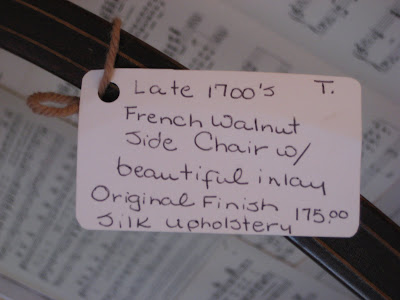 Late 1700's T.
French Walnut
Side Chair w/
beautiful inlay
Original Finish 175.00
Silk upholstery